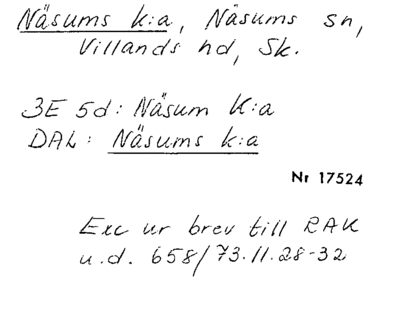 Näsums k:a, Näsums sn,
Villands hd, Sk.
3E 5d: Näsum K:a
DAL: Näsums k:a
Nr 17524
Exc ur brev till RAK
u.d. 658/73.11.28-32